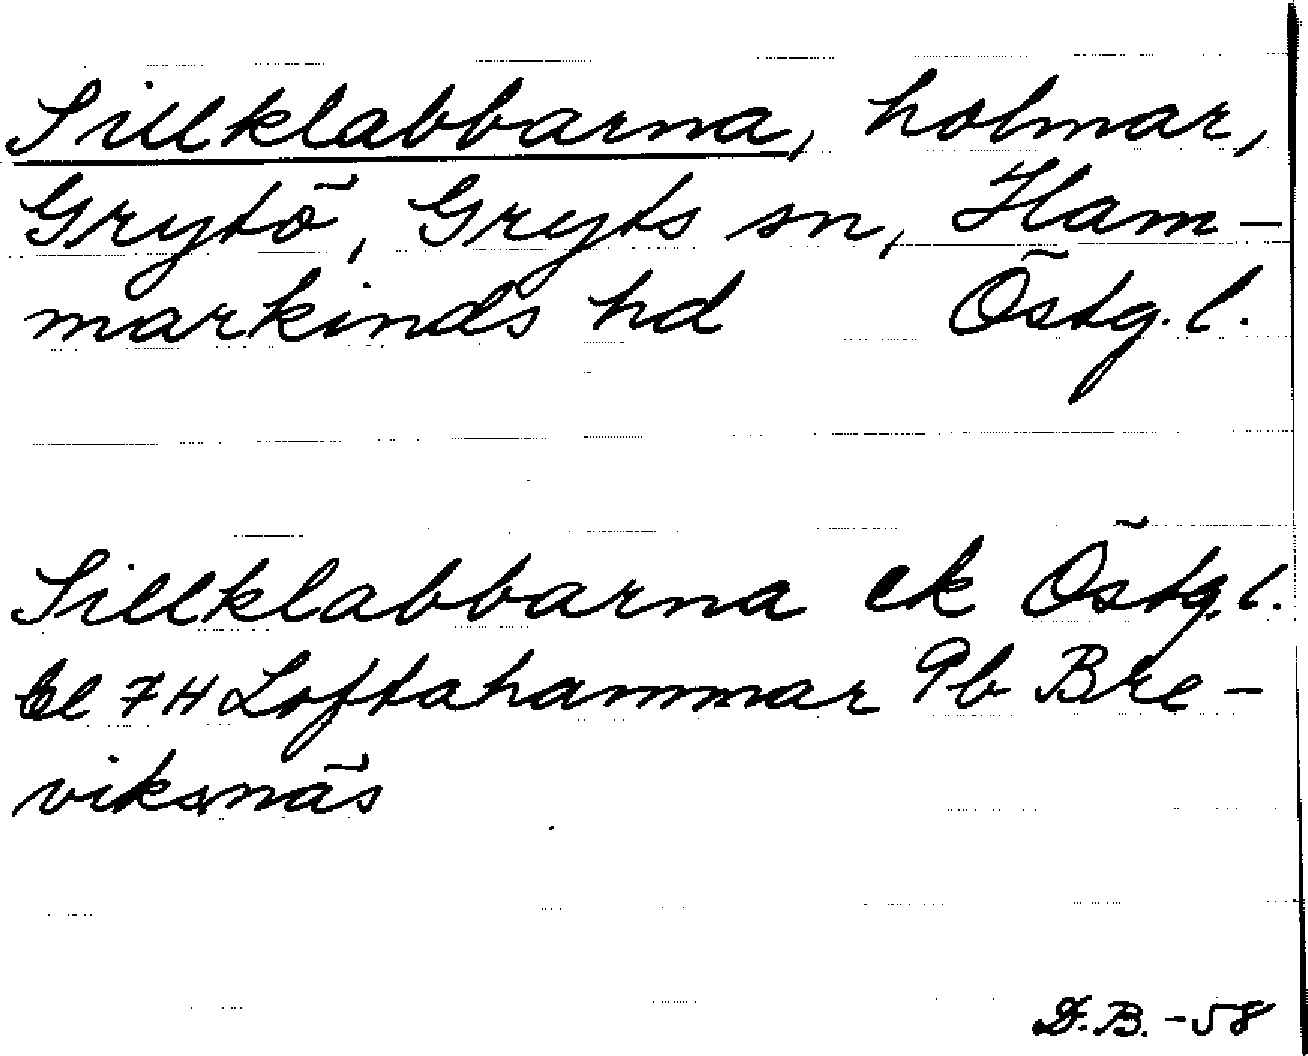 Sillklabbarna, holmar,
Grytö, Gryts sn, Ham-
markinds hd Östg. l.
Sillklabbarna ek Östg. l.
bl 7H Loftahammar 9b Bre-
viksnäs
D.B. -58